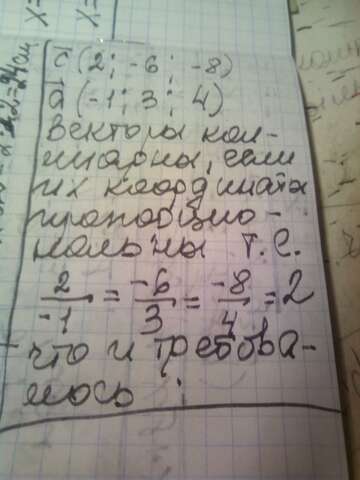 c̄ (2; -6; -8)
ā (-1; 3; 4)
Векторы кол-
инарны, если
их координаты
пропорцио-
нальны т.е.
2/-1 = -6/3 = -8/4 = 2
что и требова-
лось
x=
x=